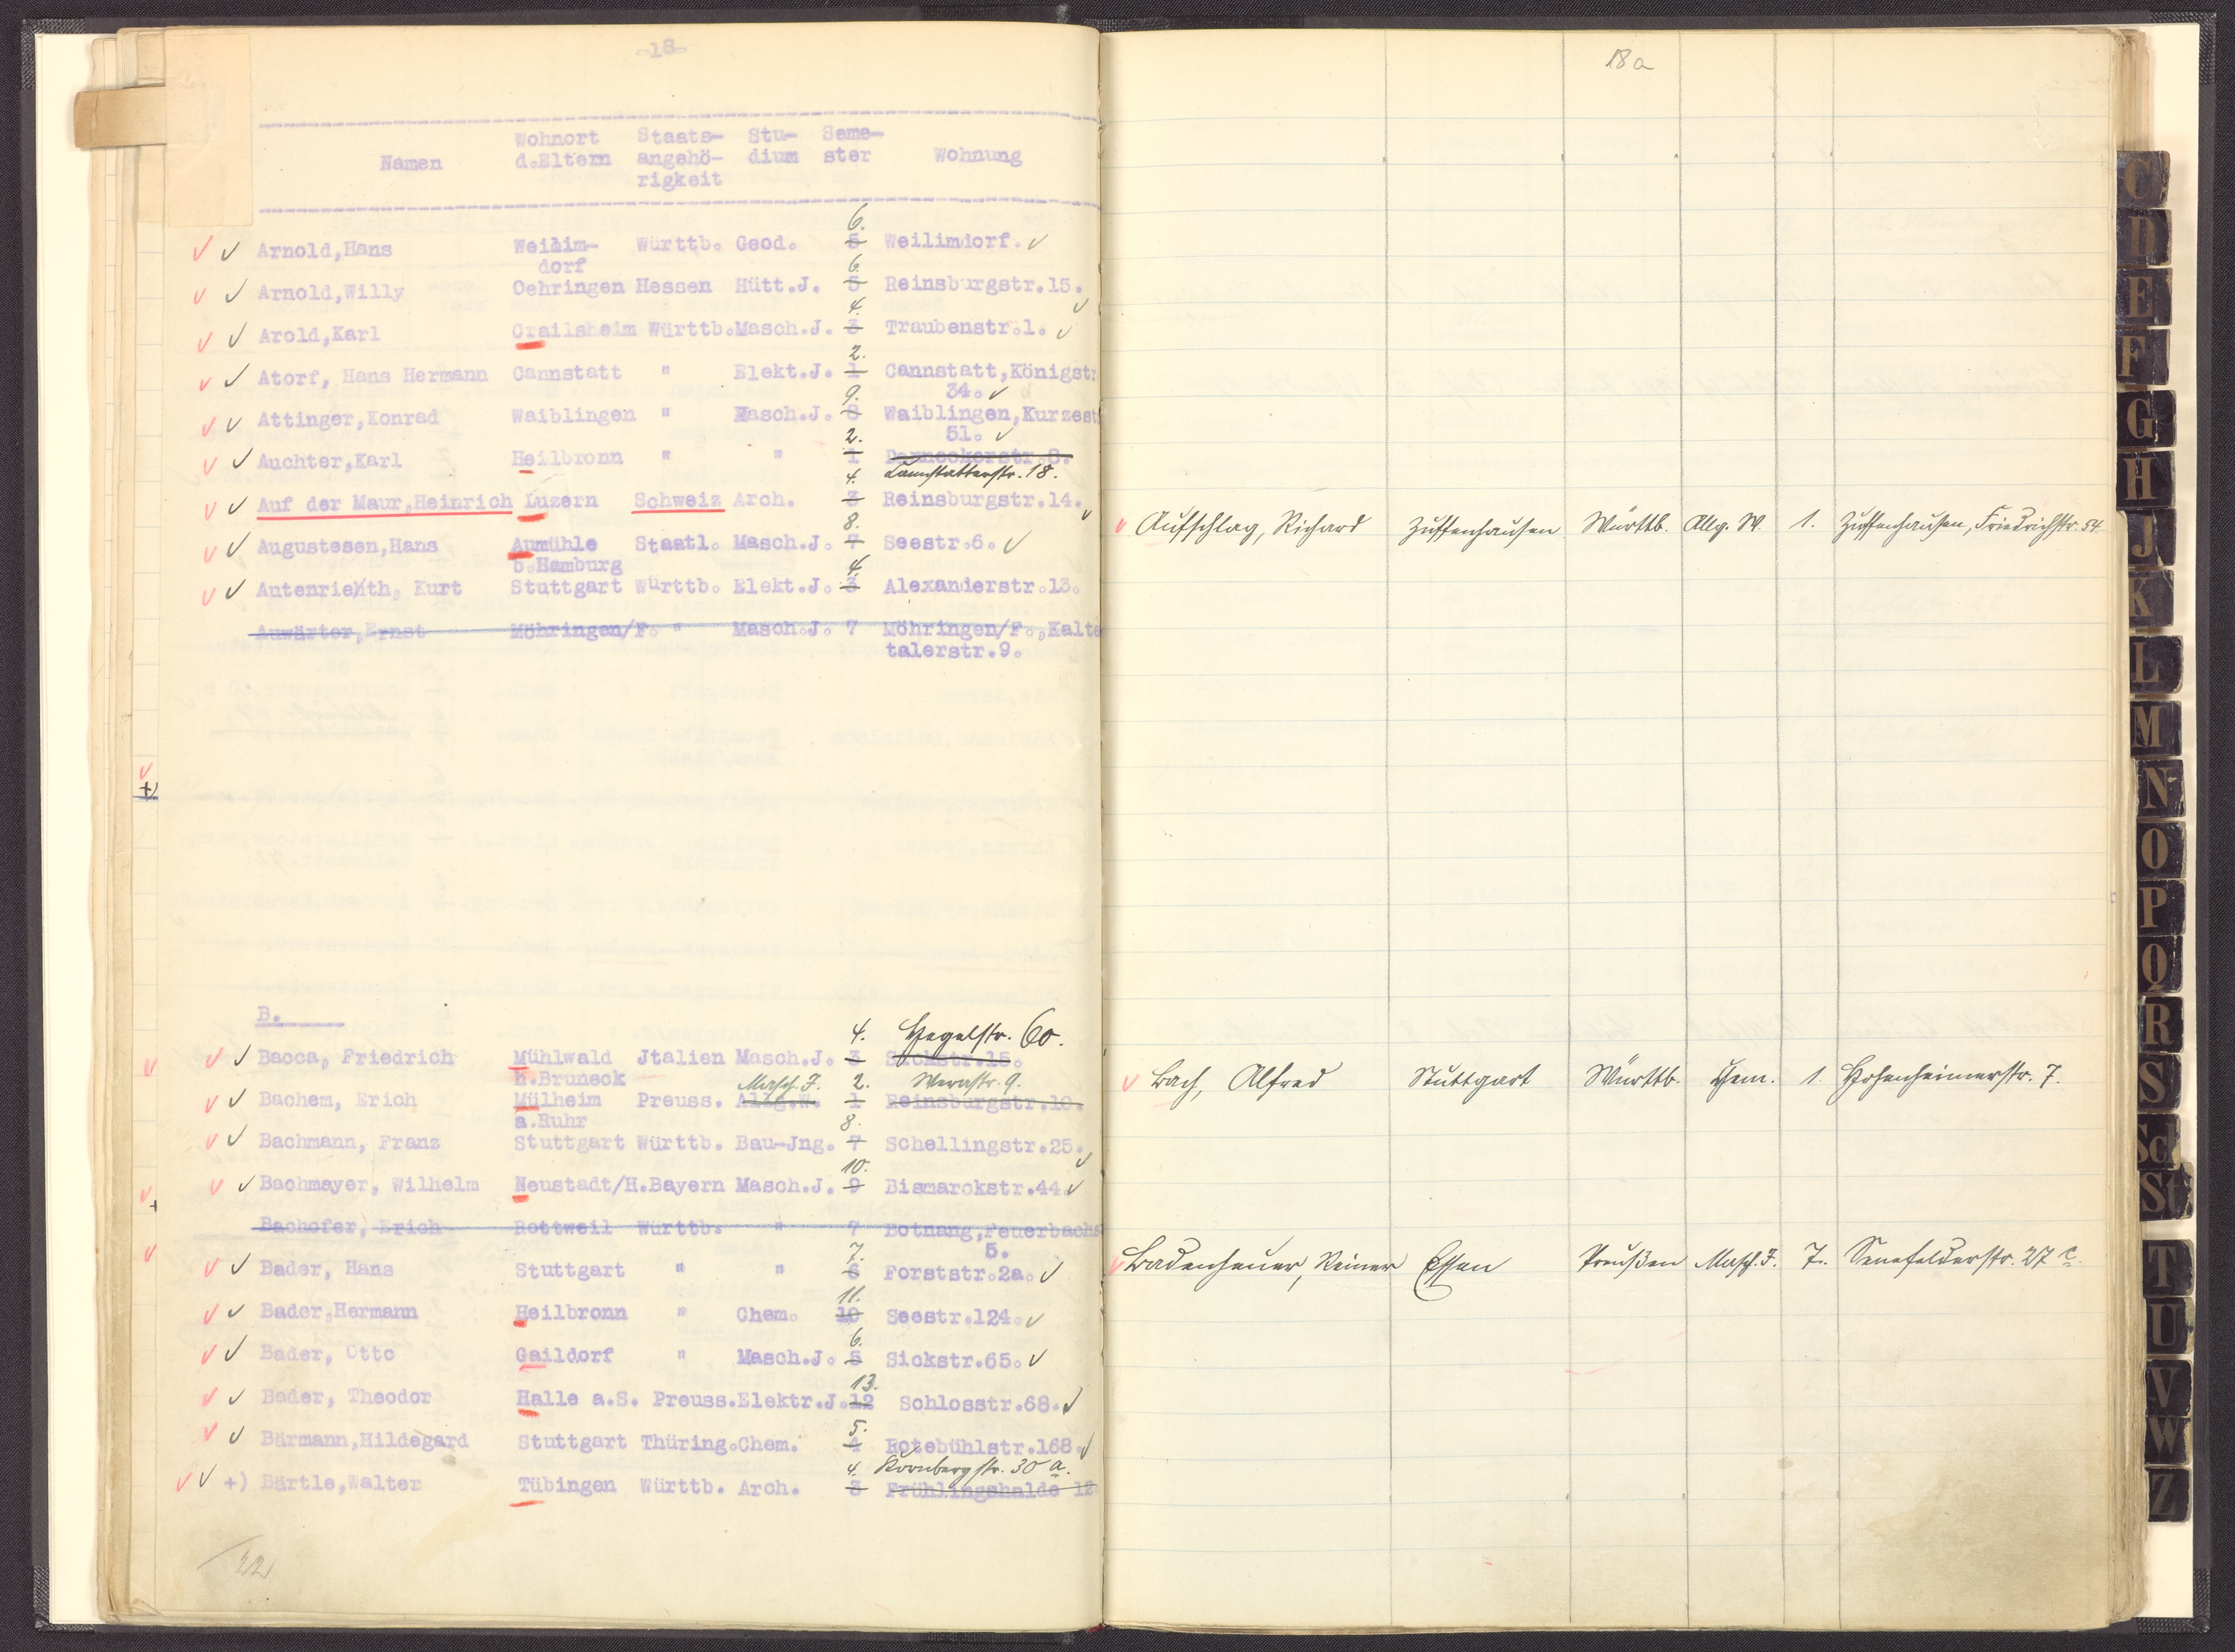 -18-
Namen Wohnort d.Eltern Staats-angehö-rigkeit Stu-dium Seme-ster Wohnung
6.
Arnold,Hans Weilim- Württb. Geod. 5 Weilimdorf.
dorf 6.
Arnold,Willy Oehringen Hessen Hütt.J. 5 Reinsburgstr.15.
4.
Arold,Karl Crailsheim Württb.Masch.J. 3 Traubenstr.1.
2.
Atorf, Hans Hermann Cannstatt " Elekt.J. 1 Cannstatt,Königstr
9. 34.
Attinger,Konrad Waiblingen " Masch.J. 8 Waiblingen,Kurzest
2. 51.
Auchter,Karl Heilbronn " " 1 Danneckerstr.8.
4. Cannstatterstr. 18.
Auf der Maur,Heinrich Luzern Schweiz Arch. 3 Reinsburgstr.14.
8.
Augustesen,Hans Aumühle Staatl. Masch.J. 7 Seestr.6.
b.Hamburg 4.
Autenrieth, Kurt Stuttgart Württb. Elekt.J. 3 Alexanderstr.13.
Auwärter,Ernst Möhringen/F. " Masch.J. 7 Möhringen/F.,Kalte
talerstr.9.
+)
B.
4. Hegelstr. 60.
Bacca, Friedrich Mühlwald Jtalien Masch.J. 3 Sickstr.15.
b.Bruneck Masch. J. 2. Werastr. 9.
Bachem, Erich Mülheim Preuss. Allg.W. 1 Reinsburgstr.10.
a.Ruhr 8.
Bachmann, Franz Stuttgart Württb. Bau-Jng. 7 Schellingstr.25.
10.
Bachmayer, Wilhelm Neustadt/H.Bayern Masch.J. 9 Bismarckstr.44.
+
Bachofer, Erich Rottweil Württb. " 7 Botnang,Feuerbachs
7. 5.
Bader, Hans Stuttgart " " 6 Forststr.2a.
11.
Bader,Hermann Heilbronn " Chem. 10 Seestr.124.
6.
Bader, Otto Gaildorf " Masch.J. 5 Sickstr.65.
13.
Bader, Theodor Halle a.S. Preuss.Elektr.J.12 Schlosstr.68.
5.
Bärmann,Hildegard Stuttgart Thüring.Chem. 4 Rotebühlstr.168.
4. Kornbergstr. 30 a.
+) Bärtle,Walter Tübingen Württb. Arch. 3 Frühlingshalde 12
22
18a
Aufschlag, Richard Zuffenhausen Württb. Allg. W. 1. Zuffenhausen, Friedrichstr. 54.
Bach, Alfred Stuttgart Württb. Chem. 1. Hohenheimerstr. 7.
Badenheuer, Reiner Essen Preußen Masch. J. 7. Senefelderstr. 27 c.
C
D
E
F
G
H
J
K
L
M
N
O
P
Q
R
S
Sch
St
T
U
V
W
Z